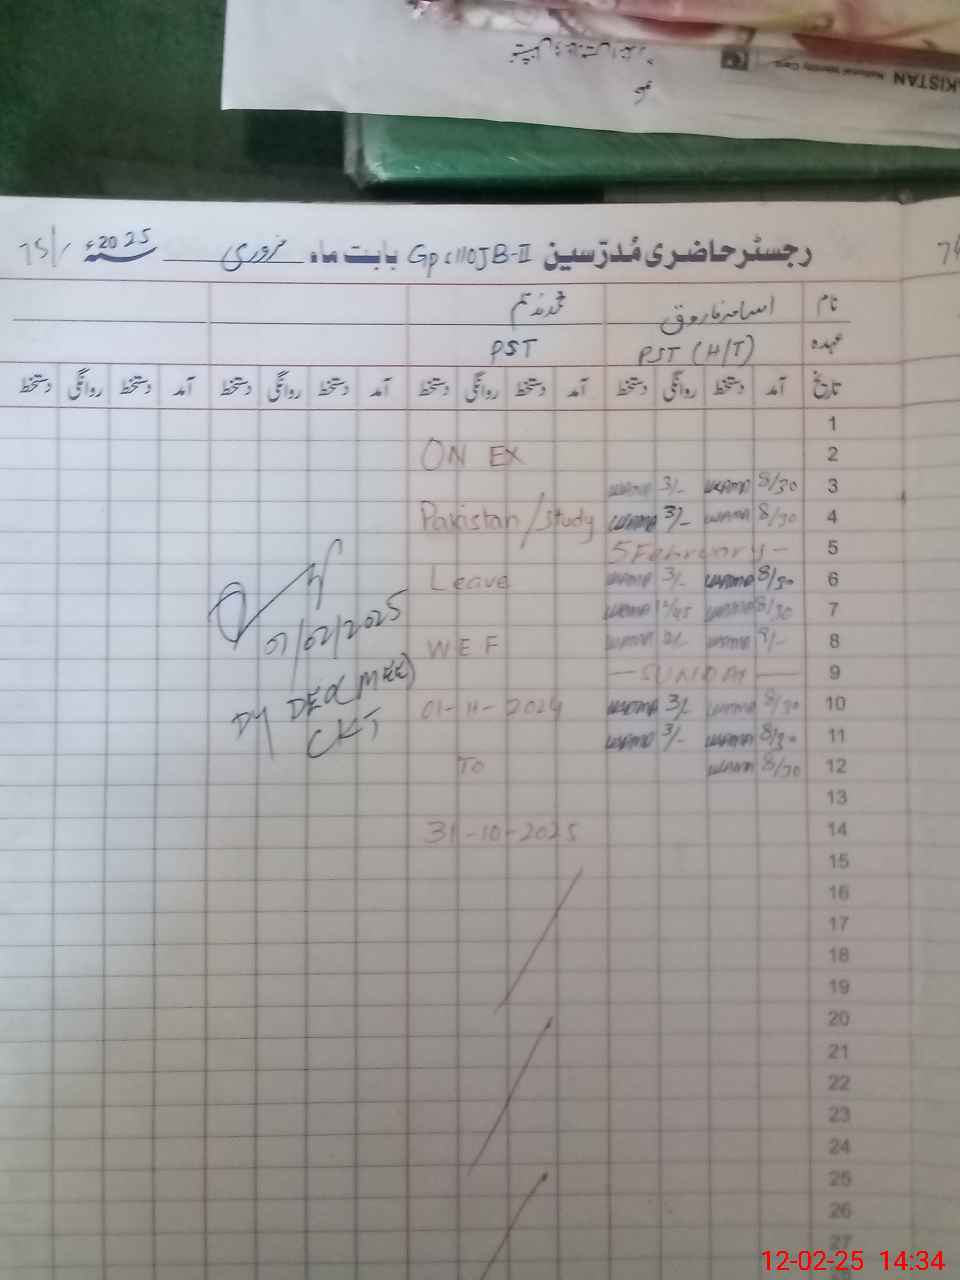 PAKISTAN National Identity Card
رجسٹر حاضری مُدرّسین GPS 110 JB-II بابت ماہ فروری سنہ 2025ء 75/-
نام اسامہ فاروق محمد ندیم
عہدہ PST (H/T) PST
تاریخ آمد دستخط روانگی دستخط آمد دستخط روانگی دستخط آمد دستخط روانگی دستخط آمد دستخط روانگی دستخط
1
2 ON EX
3 8/30 3/-
4 8/30 3/- Pakistan/Study
5 5 February -
6 8/30 3/- Leave
7 8/30 12/45
8 8/- WEF
9 — SUNDAY —
10 8/30 3/- 01-11-2024
11 8/30 3/-
12 8/30 To
13
14 31-10-2025
15
16
17
18
19
20
21
22
23
24
25
26
27
01/02/2025
DY DEO (MEE)
CKT
12-02-25 14:34